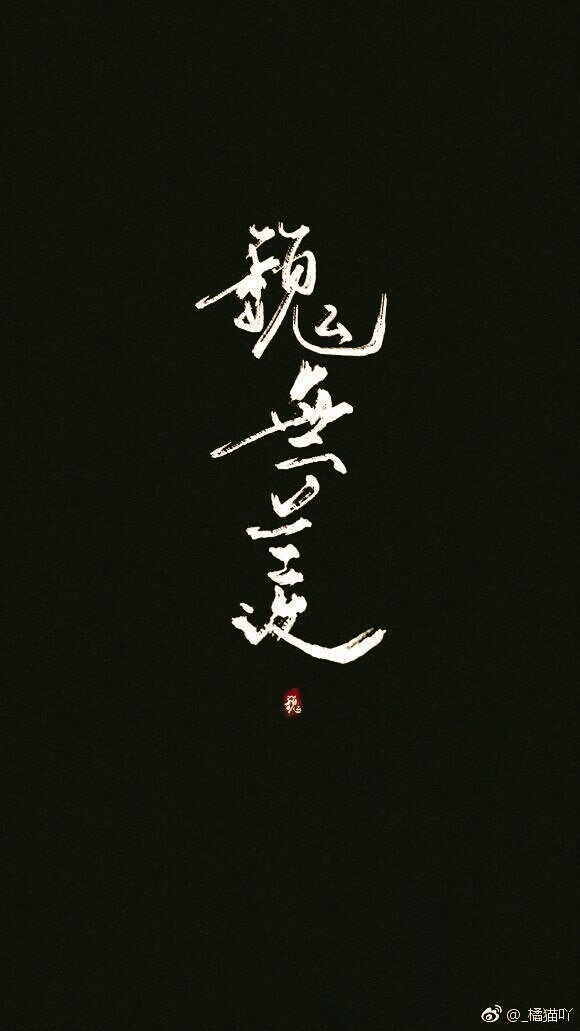 魏無羨
魏
@_橘猫吖